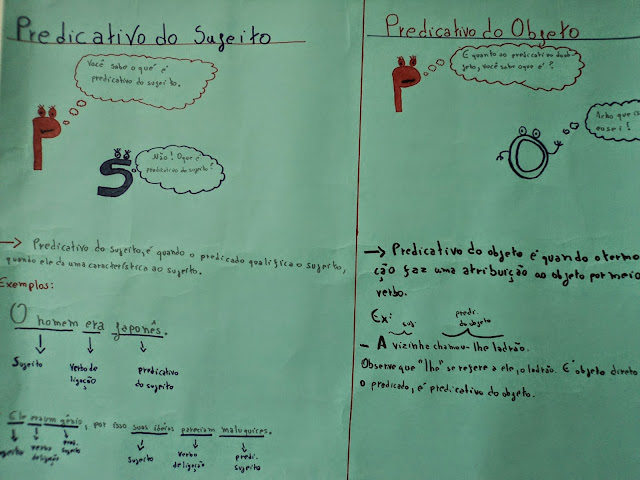 Predicativo do Sujeito
Você sabe o que é
predicativo do sujeito.
P
Não! O que é
predicativo do sujeito?
S
→ Predicativo do sujeito, é quando o predicado qualifica o sujeito,
quando ele da uma característica ao sujeito.
Exemplos:
O homem era japonês.
Sujeito
verbo de
ligação
predicativo
do sujeito
Ele era um gênio, por isso suas idéias pareciam maluquices.
sujeito
verbo
de ligação
pred.
sujeito
Sujeito
verbo
de ligação
predi.
sujeito
Predicativo do Objeto
E quanto ao predicativo do ob-
jeto, você sabe o que é?
P
Acho que
esse i!
O
→ Predicativo do objeto é quando o termo
ção faz uma atribuição ao objeto por meio
verbo.
Ex:
suj.
predi.
do objeto
- A vizinha chamou-lhe ladrão.
Observe que "lhe" se refere a ele, o ladrão. E objeto direto
o predicado, é predicativo do objeto.